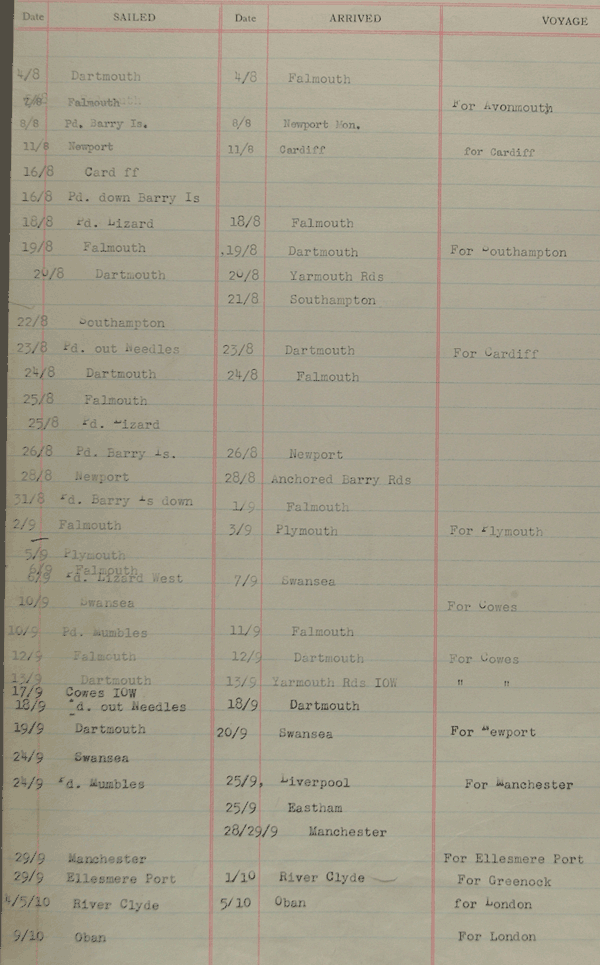 Date SAILED Date ARRIVED VOYAGE
4/8 Dartmouth 4/8 Falmouth
7/8 Falmouth For Avonmouth
8/8 Pd. Barry Is. 8/8 Newport Mon.
11/8 Newport 11/8 Cardiff for Cardiff
16/8 Card ff
16/8 Pd. down Barry Is
18/8 Pd. Lizard 18/8 Falmouth
19/8 Falmouth 19/8 Dartmouth For Southampton
20/8 Dartmouth 20/8 Yarmouth Rds
21/8 Southampton
22/8 Southampton
23/8 Pd. out Needles 23/8 Dartmouth For Cardiff
24/8 Dartmouth 24/8 Falmouth
25/8 Falmouth
25/8 Pd. Lizard
26/8 Pd. Barry Is. 26/8 Newport
28/8 Newport 28/8 Anchored Barry Rds
31/8 Pd. Barry Is down 1/9 Falmouth
2/9 Falmouth 3/9 Plymouth For Plymouth
5/9 Plymouth
6/9 Falmouth
6/9 Pd. Lizard West 7/9 Swansea
10/9 Swansea For Cowes
10/9 Pd. Mumbles 11/9 Falmouth
12/9 Falmouth 12/9 Dartmouth For Cowes
13/9 Dartmouth 13/9 Yarmouth Rds IOW " "
17/9 Cowes IOW
18/9 Pd. out Needles 18/9 Dartmouth
19/9 Dartmouth 20/9 Swansea For Newport
24/9 Swansea
24/9 Pd. Mumbles 25/9, Liverpool For Manchester
25/9 Eastham
28/29/9 Manchester
29/9 Manchester For Ellesmere Port
29/9 Ellesmere Port 1/10 River Clyde For Greenock
4/5/10 River Clyde 5/10 Oban for London
9/10 Oban For London